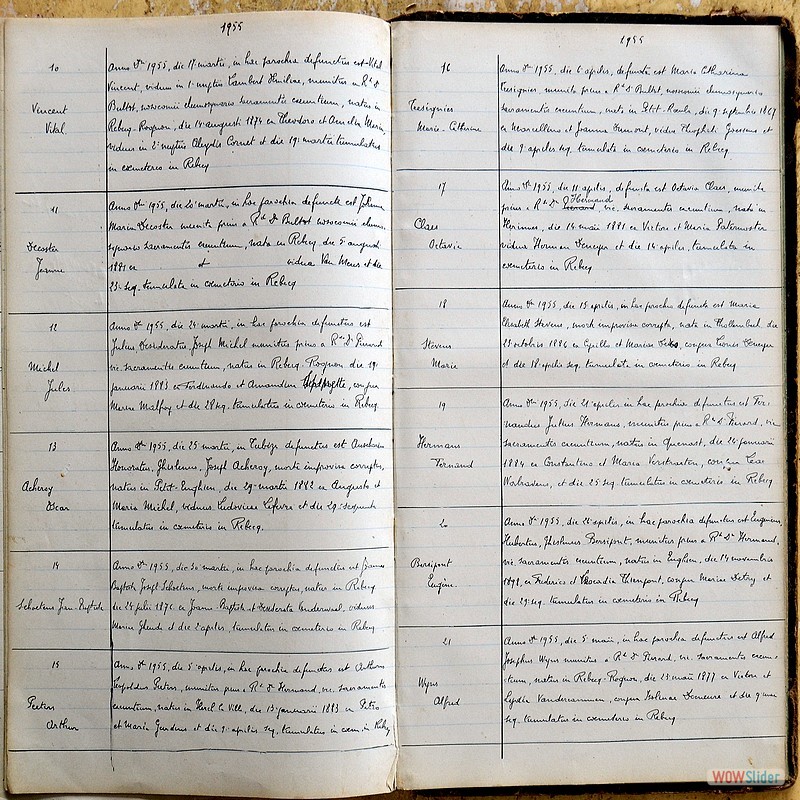 1955
10
Vincent
Vital
Anno Dni 1955, die 17 martii, in hac parochia defunctus est Vital
Vincent, viduus in 1is nuptiis Lambert Emiliae, munitus a Rdo D
Bultot, nosocomii eleemosynario sacramentis exeuntium, natus in
Rebecq-Rognon, die 14 augusti 1874 ex Theodoro et Amelia Marin,
viduus in 2is nuptiis Aleydis Cornet et die 19 martii tumulatus
in coemeterio in Rebecq
11
Decoster
Jeanne
Anno Dni 1955, die 20 martii, in hac parochia defuncta est Johanna
Maria Decoster munita prius a Rdo D Bultot nosocomii eleemo-
synario sacramentis exeuntium, nata in Rebecq, die 5 augusti
1881 ex et vidua Van Meus et die
23 seq. tumulata in coemeterio in Rebecq
12
Michel
Jules
Anno Dni 1955, die 24 martii, in hac parochia defunctus est
Julius Desideratus Joseph Michel munitus prius a Rdo D Pierard
vic. sacramentis exeuntium, natus in Rebecq-Rognon die 19
januarii 1883 ex Ferdinando et Amandina conjux
Mariae Malfroy et die 28 seq. tumulatus in coemeterio in Rebecq.
13
Acheroy
Oscar
Anno Dni 1955, die 25 martii, in Tubize defunctus est Auscharius
Honoratus, Ghislenus, Joseph Acheroy, morte improvisa correptus,
natus in Petit-Enghien, die 29 martii 1882 ex Augusto et
Maria Michel, viduus Ludovica Lefevre et die 29 sequenti
tumulatus in coemeterio in Rebecq.
14
Schoetens Jean-Baptiste
Anno Dni 1955, die 30 martii, in hac parochia defunctus est Joannes
Baptista Joseph Schoetens, morte improvisa correptus, natus in Rebecq
die 24 julii 1876 ex Joanne Baptista et Desiderata viduus
Maria et die 2 aprilis, tumulatus in coemeterio in Rebecq
15
Peeters
Arthur
Anno Dni 1955, die 5 aprilis, in hac parochia defunctus est Arthurus
Leopoldus Peeters, munitus prius a Rdo D Hermand, vic. sacramentis
exeuntium, natus in la Ville, die 13 januarii 1893 ex Petro
et Maria et die 9 aprilis seq. tumulatus in coem. in Rebecq
1955
16
Tresignies
Marie-Catherine
Anno Dni 1955, die 6 aprilis, defuncta est Maria Catharina
Tresignies munita prius a Rdo D Bultot, nosocomii eleemosynario
sacramentis exeuntium, nata in Petit-Roeulx, die 9 septembris 1867
ex Marcellino et Joanna Dumont, vidua Theophili Goossens et
die 9 aprilis seq. tumulata in coemeterio in Rebecq.
17
Claes
Octavie
Anno Dni 1955, die 11 aprilis, defuncta est Octavia Claes, munita
prius a Rdo D Hermand vic. sacramentis exeuntium, nata in
Herinnes, die 14 maii 1881 ex Victore et Maria Paternoster
vidua Herman Deneyer et die 14 aprilis, tumulata in
coemeterio in Rebecq
18
Stevens
Marie
Anno Dni 1955, die 15 aprilis, in hac parochia defuncta est Maria
Elisabeth Stevens, morte improvisa correpta, nata in Thollembeek, die
23 octobris 1886 ex Cyrillo et Maria conjux Louis Deneyer
et die 18 aprilis seq. tumulata in coemeterio in Rebecq
19
Hermans
Fernand
Anno Dni 1955, die 21 aprilis, in hac parochia defunctus est Fer-
nandus Julius Hermans, munitus prius a Rdo D Pierard, vic
sacramentis exeuntium, natus in Quenast, die 24 januarii
1884 ex Constantino et Maria Verstraeten, conjux Leae
Walravens, et die 25 seq. tumulatus in coemeterio, in Rebecq
20
Bersipont
Eugène.
Anno Dni 1955, die 26 aprilis, in hac parochia defunctus est Eugenius,
Hubertus, Ghislenus Bersipont, munitus prius a Rdo D Hermand,
vic. sacramentis exeuntium, natus in Enghien, die 14 novembris
1892, ex Federico et Leocadia Thienpont, conjux Mariae Detry et
die 29 seq. tumulatus in coemeterio in Rebecq
21
Wyns
Alfred
Anno Dni 1955, die 5 maii, in hac parochia defunctus est Alfred
Josephus Wyns munitus a Rdo D Pierard, vic. sacramentis exeun-
tium, natus in Rebecq-Rognon, die 25 maii 1877 ex Victore et
Lydia Vandercammen, conjux Demeure et die 9 maii
seq. tumulatus in coemeterio in Rebecq
WOWSlider